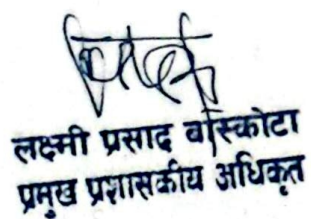 लक्ष्मी प्रसाद बाँस्कोटा
प्रमुख प्रशासकीय अधिकृत